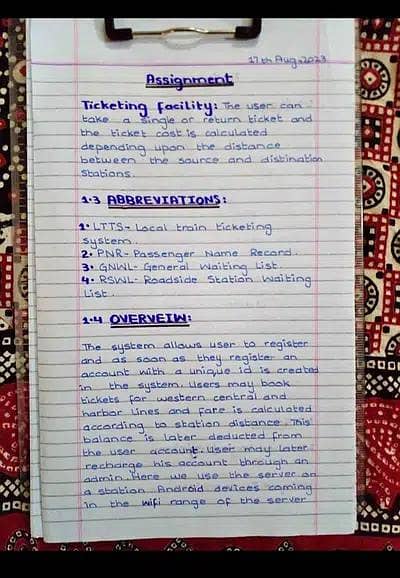 17th Aug, 2023
Assignment
Ticketing facility: The user can
take a single or return ticket and
the ticket cost is calculated
depending upon the distance
between the source and distination
stations.
1.3 ABBREVIATIONS:
1. LTTS- Local train ticketing
system.
2. PNR- Passenger Name Record.
3. GNWL- General Waiting List.
4. RSWL- Roadside Station Waiting
List.
1.4 OVERVEIW:
The system allows user to register
and as soon as they register an
account with a unique id is created
in the system. Users may book
tickets for western central and
harbor lines and fare is calculated
according to station distance. This
balance is later deducted from
the user account. User may later
recharge his account through an
admin. Here we use the server on
a station. Android devices coming
in the wifi range of the server